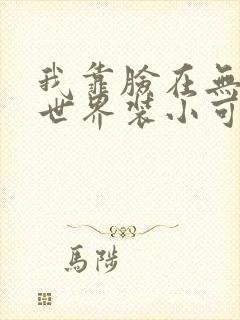 我靠臉在無
世界裝小可
馬陟